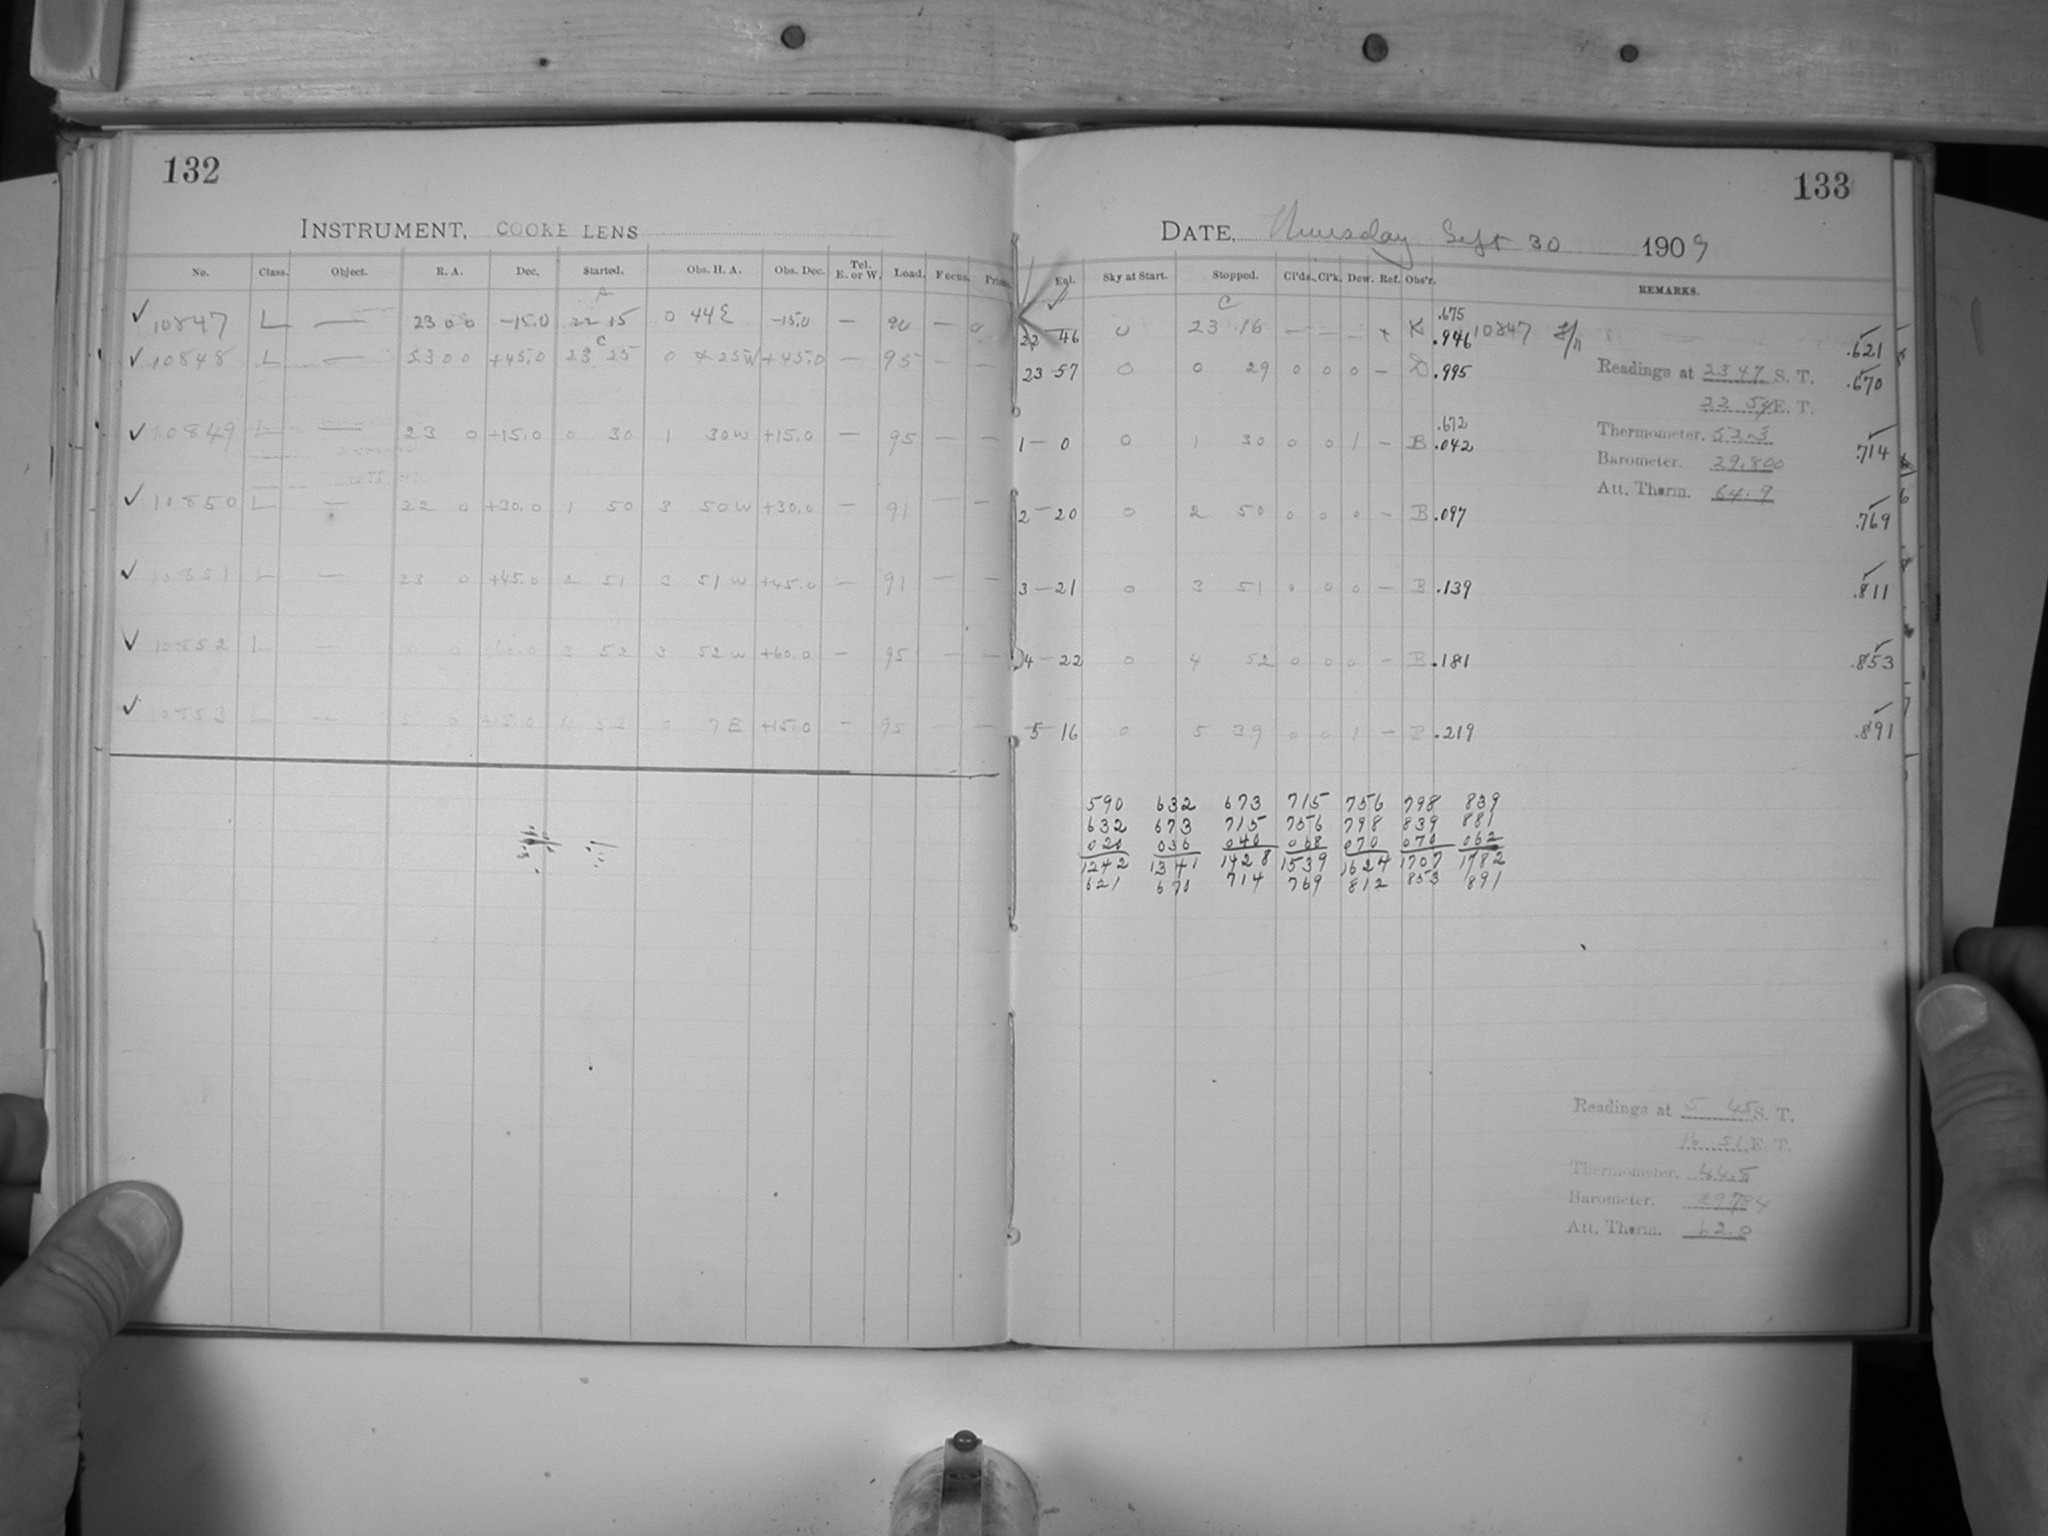 132
INSTRUMENT, COOKE LENS
No. Class. Object. R. A. Dec. Started. Obs. H. A. Obs. Dec. Tel. E. or W. Load. Focus. Prism.
A
✓ 10847 L — 23 0 0 -15.0 22 15 0 44 E -15.0 — 90 — 0
C
✓ 10848 L — 23 0 0 +45.0 23 25 0 25 W +45.0 — 95 — —
✓ 10849 L — 23 0 +15.0 0 30 1 30 W +15.0 — 95 — —
✓ 10850 L — 22 0 +30.0 1 50 3 50 W +30.0 — 91 — —
✓ 10851 L — 23 0 +45.0 2 51 3 51 W +45.0 — 91 — —
✓ 10852 L — 0 0 +60.0 3 52 3 52 W +60.0 — 95 — —
✓ 10853 L — 0 +15.0 4 53 0 7 E +15.0 — 95 — —
133
DATE, Thursday Sept 30 1909
Ent. Sky at Start. Stopped. Cl'ds. Cl'k. Dew. Ref. Obs'r. REMARKS.
C
.675
22 46 0 23 16 — — — K .946 10847 .621
23-57 0 0 29 0 0 0 — D .995 .670
.672
1-0 0 1 30 0 0 1 — B .042 .714
2-20 0 2 50 0 0 0 — B .097 .769
3-21 0 3 51 0 0 0 — B .139 .811
4-22 0 4 52 0 0 0 — B .181 .853
5 16 0 5 39 0 0 1 — B .219 .891
Readings at 23 47 S. T.
22 54 E. T.
Thermometer. 52.3
Barometer. 29.800
Att. Therm. 64.9
590 632 673 715 756 798 839
632 673 715 756 798 839 881
020 036 040 068 070 070 062
1242 1341 1428 1539 1624 1707 1782
621 670 714 769 812 853 891
Readings at 5 45 S. T.
16 51 E. T.
Thermometer. 44.5
Barometer. 29.784
Att. Therm. 62.0